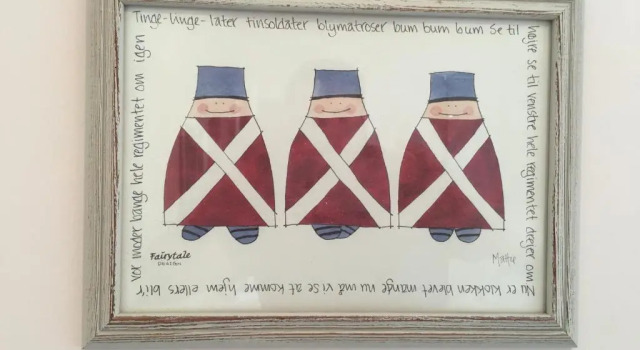 Tinge-linge-later tinsoldater blymatroser bum bum bum Se til
højre se til venstre hele regimentet drejer om
Nu er klokken blevet mange nu må vi se at komme hjem ellers bli'r
vor moder bange hele regimentet om igen
Fairytale